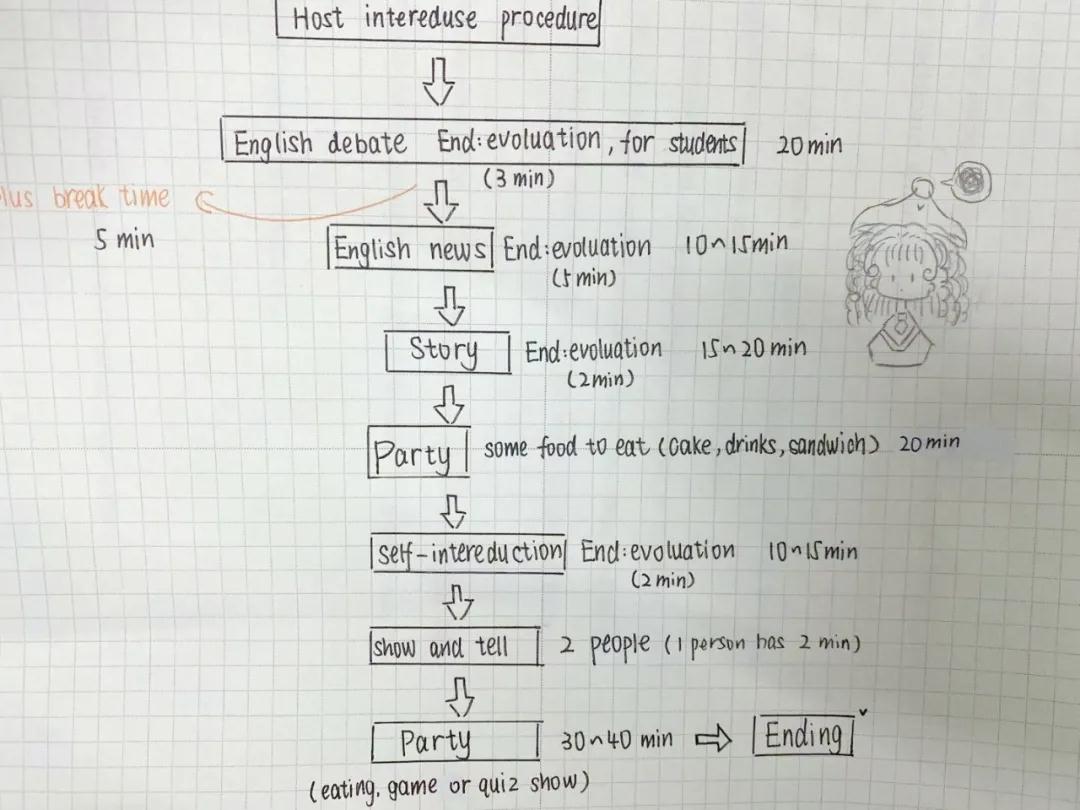 Host intereduse procedure
English debate End:evoluation, for students 20min
(3 min)
lus break time
5 min
English news End:evoluation 10~15min
(5 min)
Story End:evoluation 15~20 min
(2min)
Party some food to eat (cake, drinks, sandwich) 20min
self-intereduction End:evoluation 10~15min
(2min)
show and tell 2 people (1 person has 2 min)
Party 30~40 min Ending
(eating, game or quiz show)